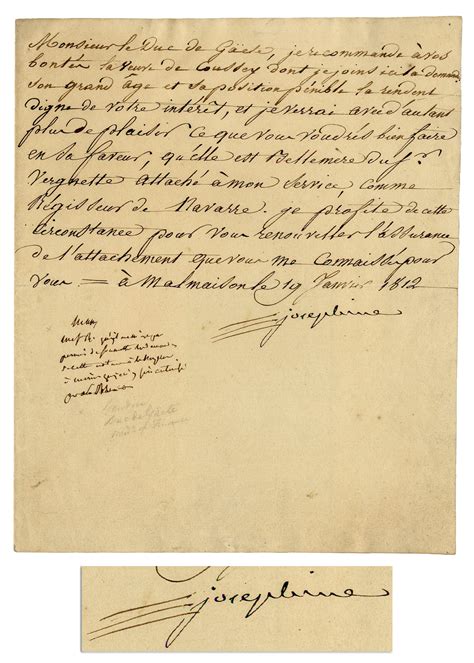 Monsieur le Duc de Gaëte je recommande à vos
bontés la veuve de Coussey dont je joins ici la demande
son grand âge et sa position pénible la rendent
digne de votre intérêt, et je verrai avec d'autant
plus de plaisir ce que vous voudrés bien faire
en sa faveur, qu'elle est Bellemère du Sr.
Vergnette Attaché à mon service, comme
Régisseur de Navarre. je profite de cette
circonstance pour vous renouveller l'assurance
de l'attachement que vous me connaissés pour
vous. = à Malmaison le 19 Janvier 1812
josephine
josephine